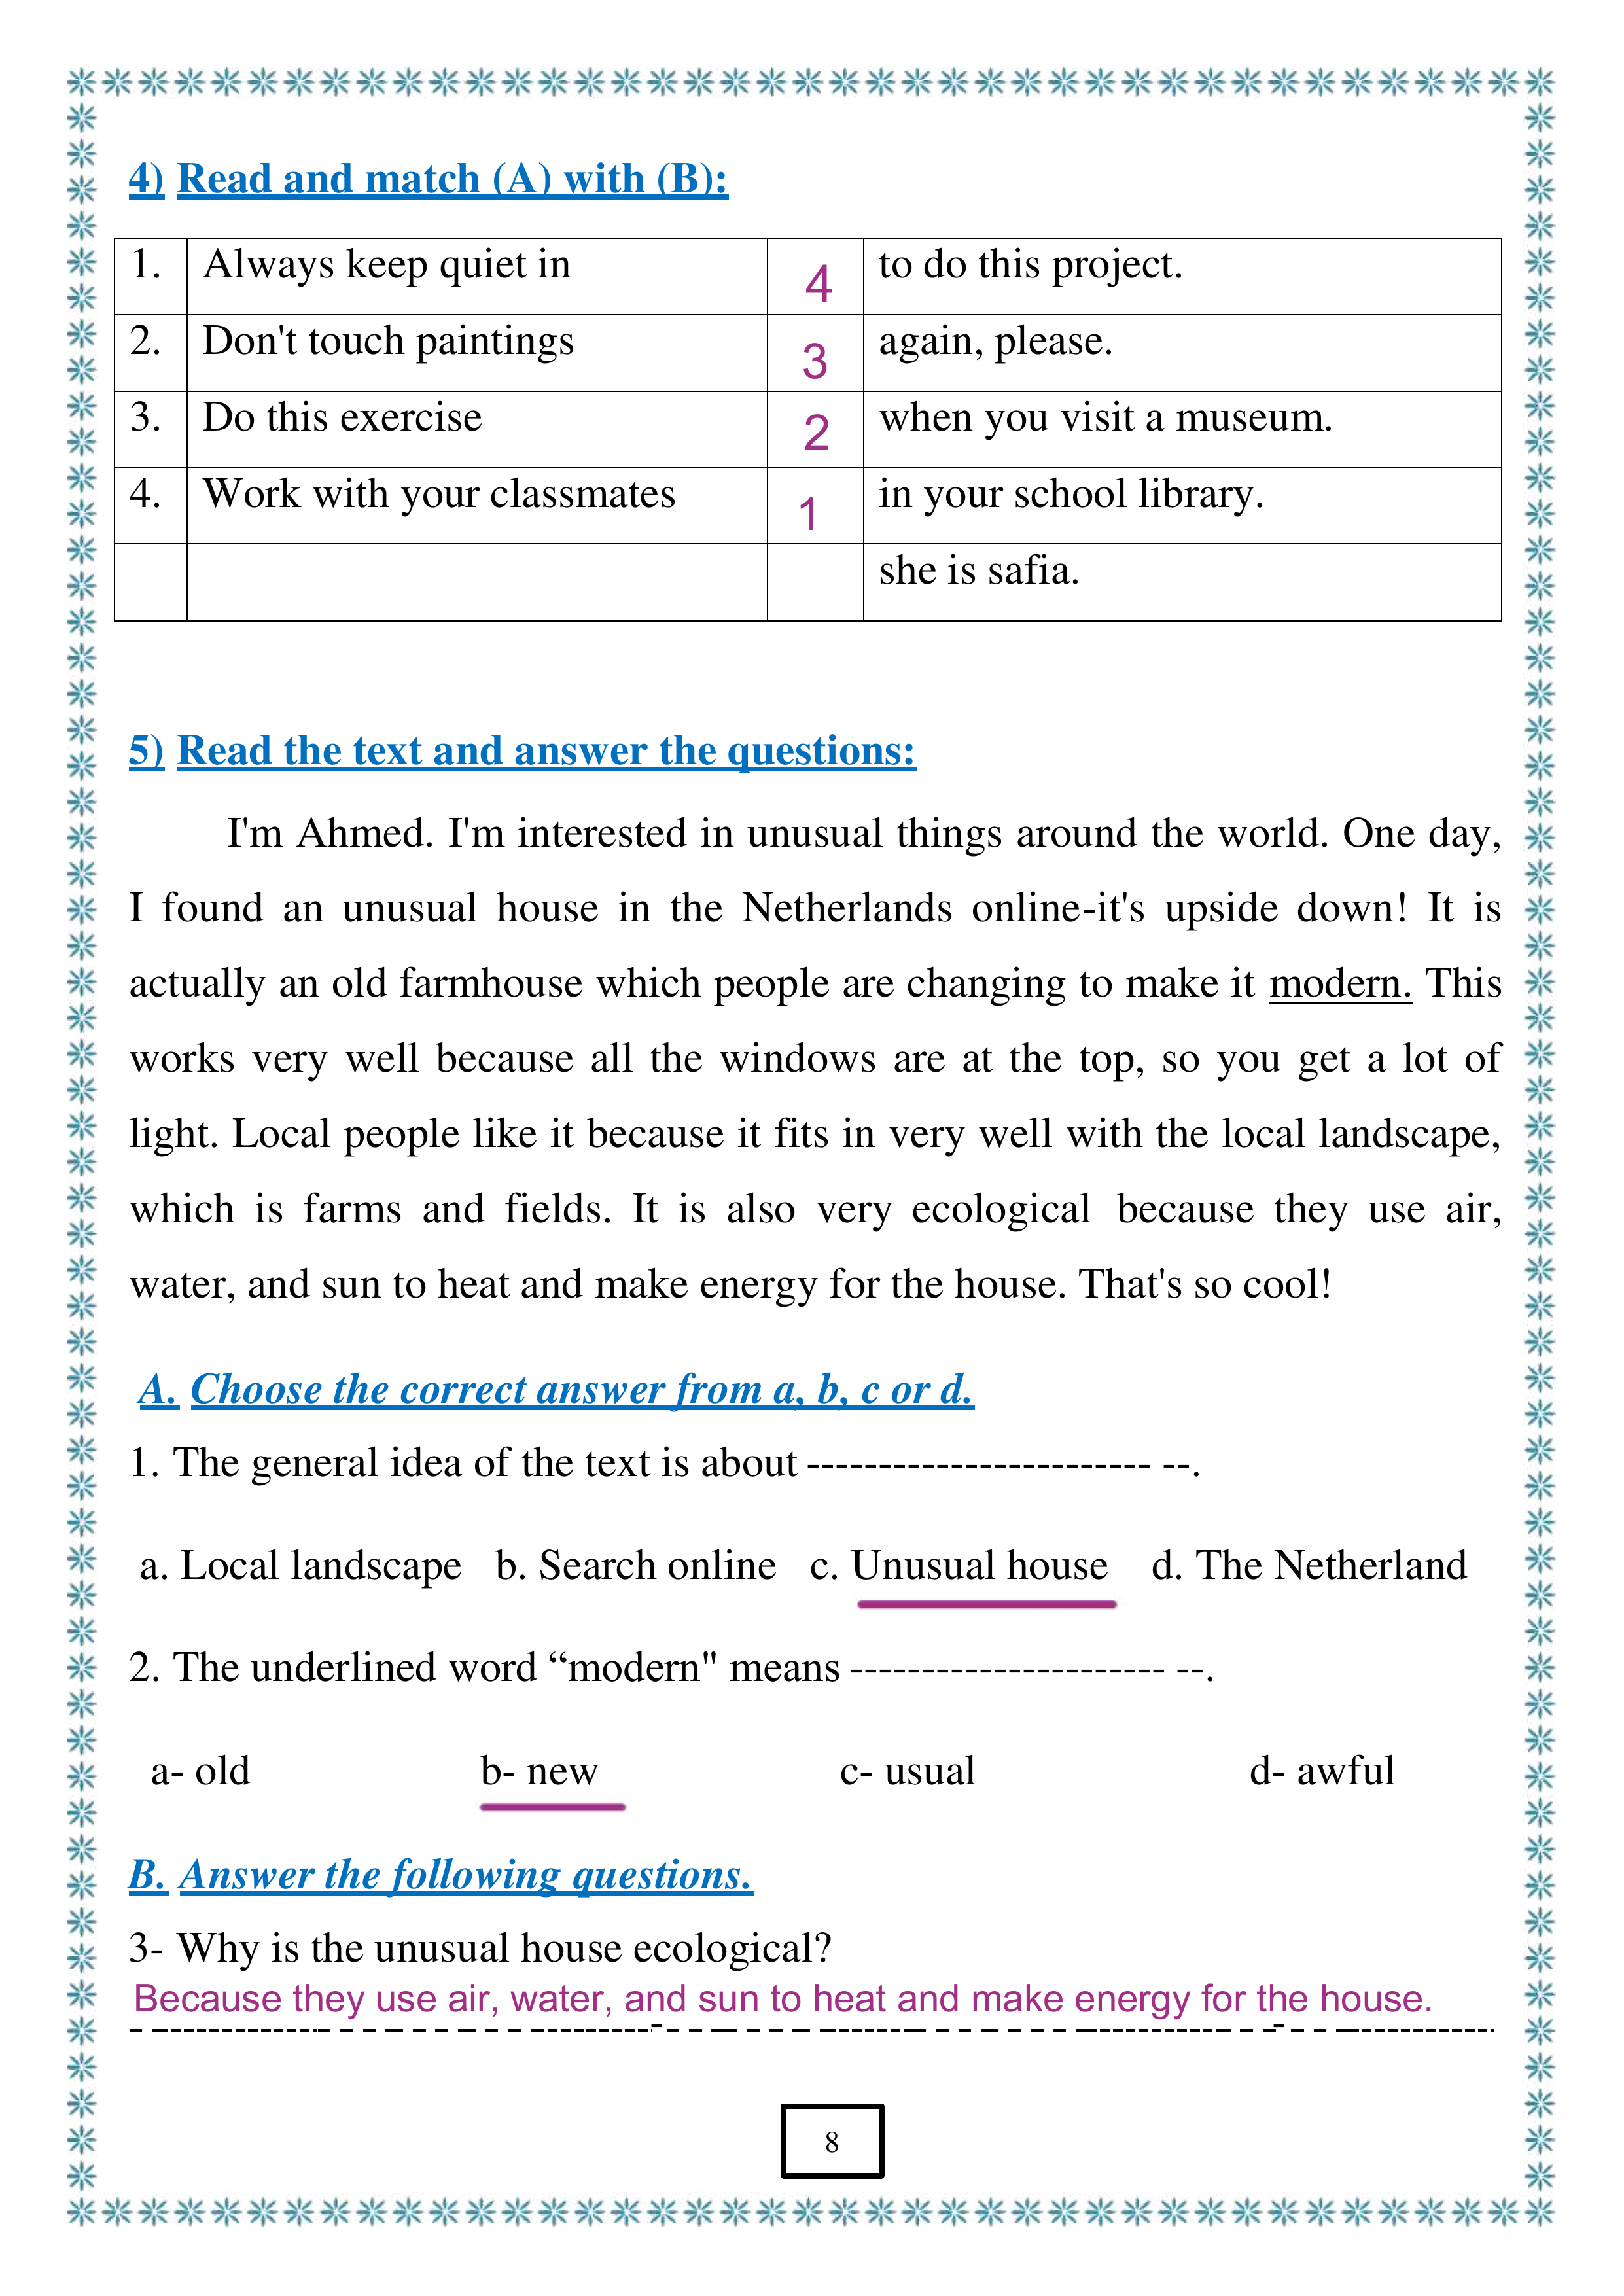 4) Read and match (A) with (B):
1. Always keep quiet in 4 to do this project.
2. Don't touch paintings 3 again, please.
3. Do this exercise 2 when you visit a museum.
4. Work with your classmates 1 in your school library.
she is safia.
5) Read the text and answer the questions:
I'm Ahmed. I'm interested in unusual things around the world. One day,
I found an unusual house in the Netherlands online-it's upside down! It is
actually an old farmhouse which people are changing to make it modern. This
works very well because all the windows are at the top, so you get a lot of
light. Local people like it because it fits in very well with the local landscape,
which is farms and fields. It is also very ecological because they use air,
water, and sun to heat and make energy for the house. That's so cool!
A. Choose the correct answer from a, b, c or d.
1. The general idea of the text is about ------------------------ --.
a. Local landscape b. Search online c. Unusual house d. The Netherland
2. The underlined word “modern" means ---------------------- --.
a- old b- new c- usual d- awful
B. Answer the following questions.
3- Why is the unusual house ecological?
Because they use air, water, and sun to heat and make energy for the house.
8